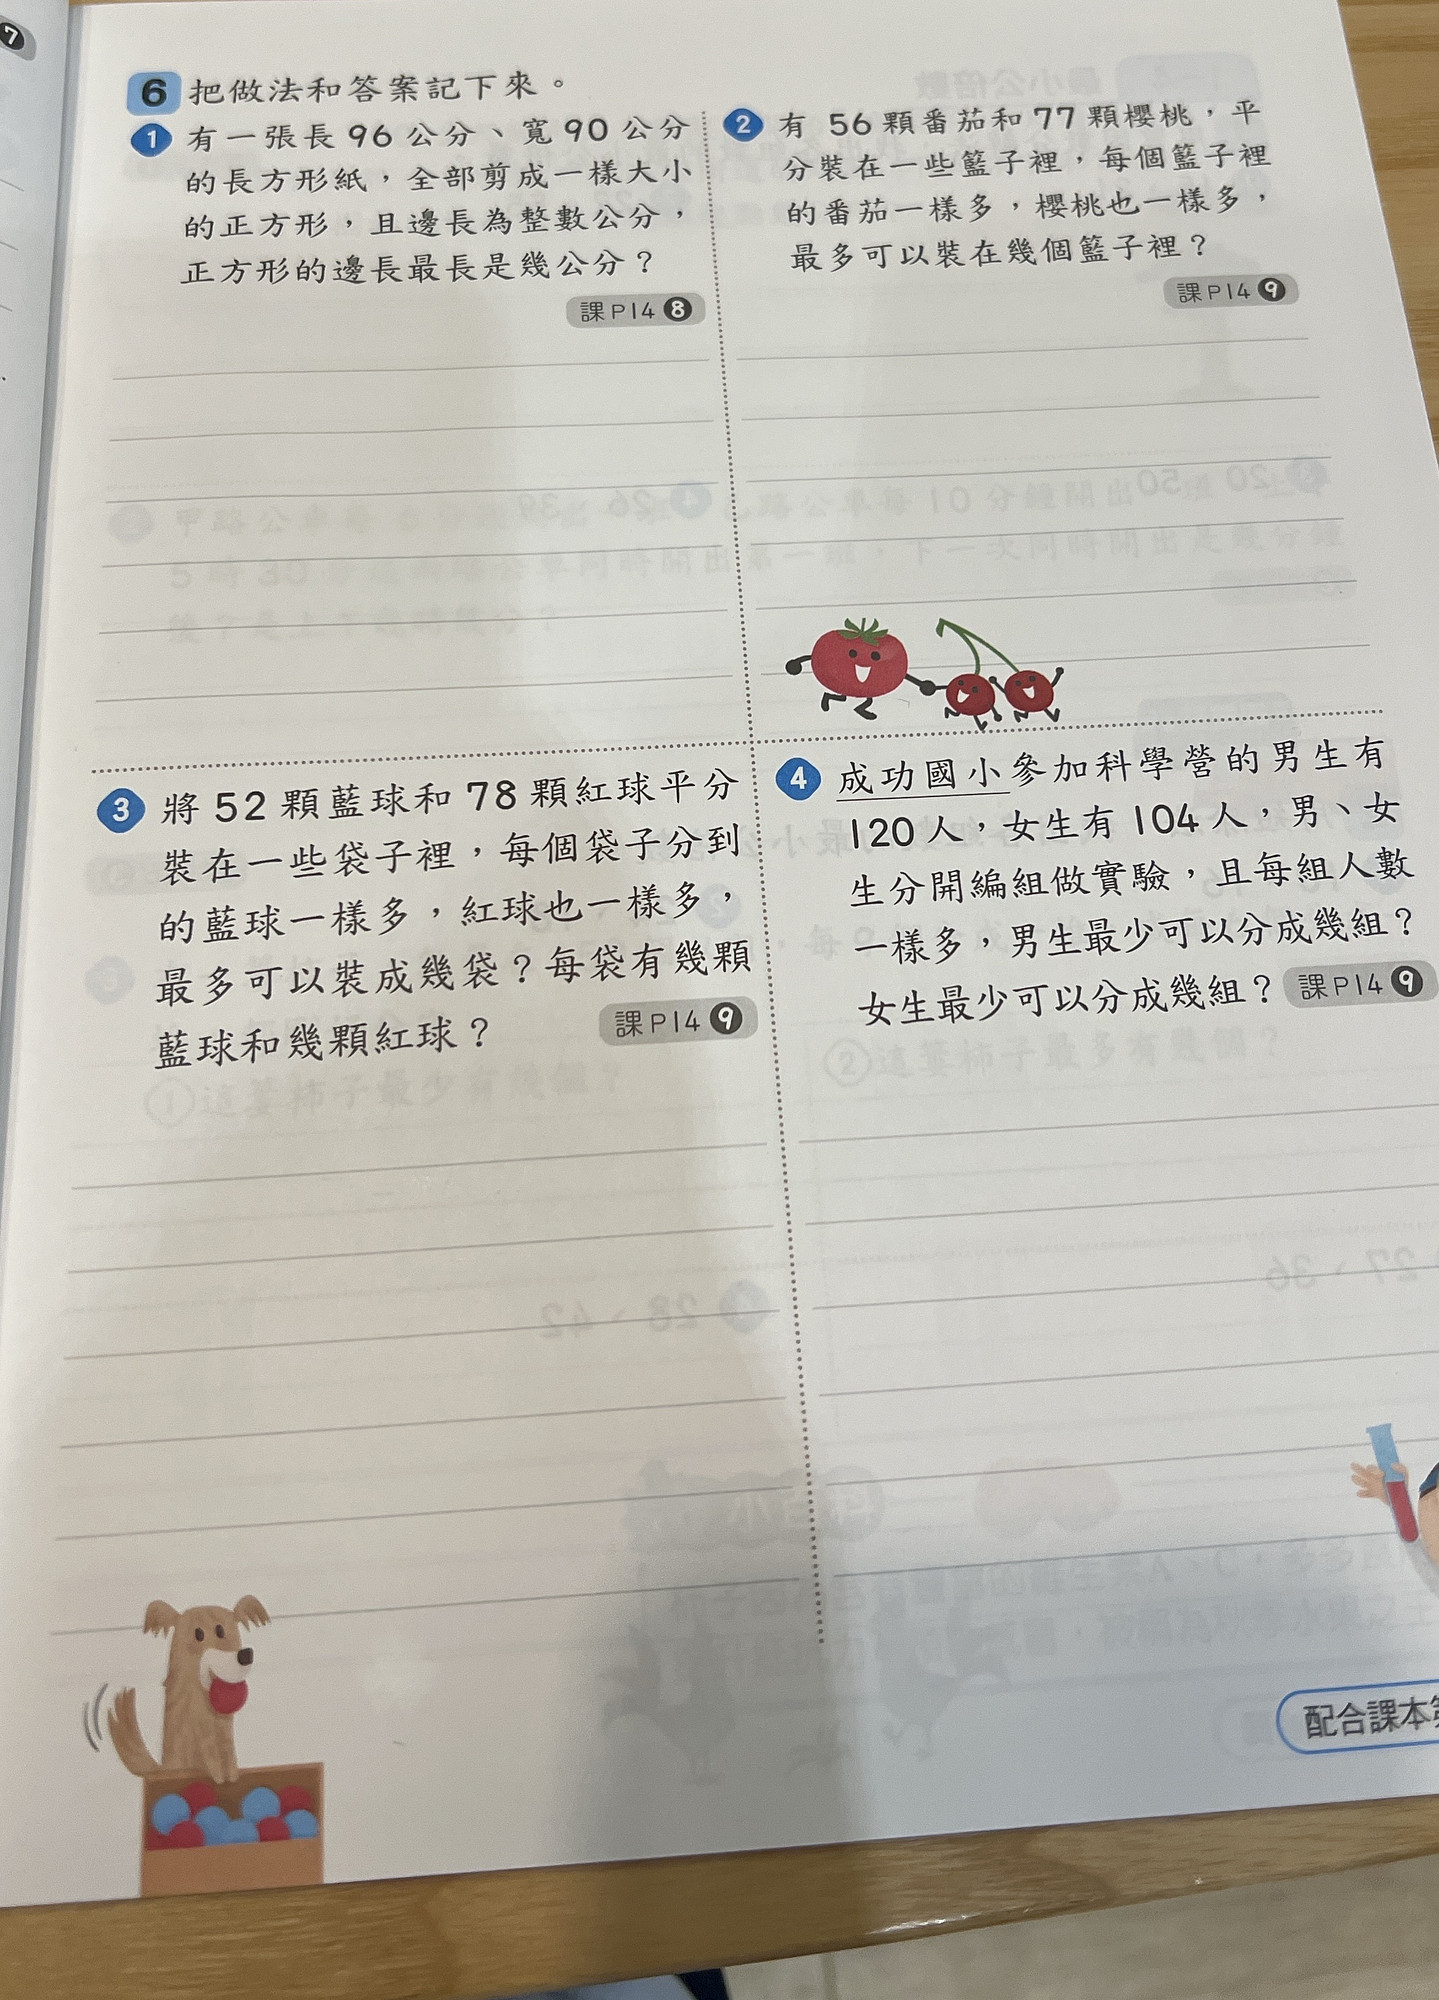 7
6 把做法和答案記下來。
1 有一張長 96 公分、寬 90 公分
的長方形紙，全部剪成一樣大小
的正方形，且邊長為整數公分，
正方形的邊長最長是幾公分？
課P14 8
2 有 56 顆番茄和 77 顆櫻桃，平
分裝在一些籃子裡，每個籃子裡
的番茄一樣多，櫻桃也一樣多，
最多可以裝在幾個籃子裡？
課P14 9
3 將 52 顆藍球和 78 顆紅球平分
裝在一些袋子裡，每個袋子分到
的藍球一樣多，紅球也一樣多，
最多可以裝成幾袋？每袋有幾顆
藍球和幾顆紅球？
課P14 9
4 成功國小參加科學營的男生有
120 人，女生有 104 人，男、女
生分開編組做實驗，且每組人數
一樣多，男生最少可以分成幾組？
女生最少可以分成幾組？ 課P14 9
配合課本